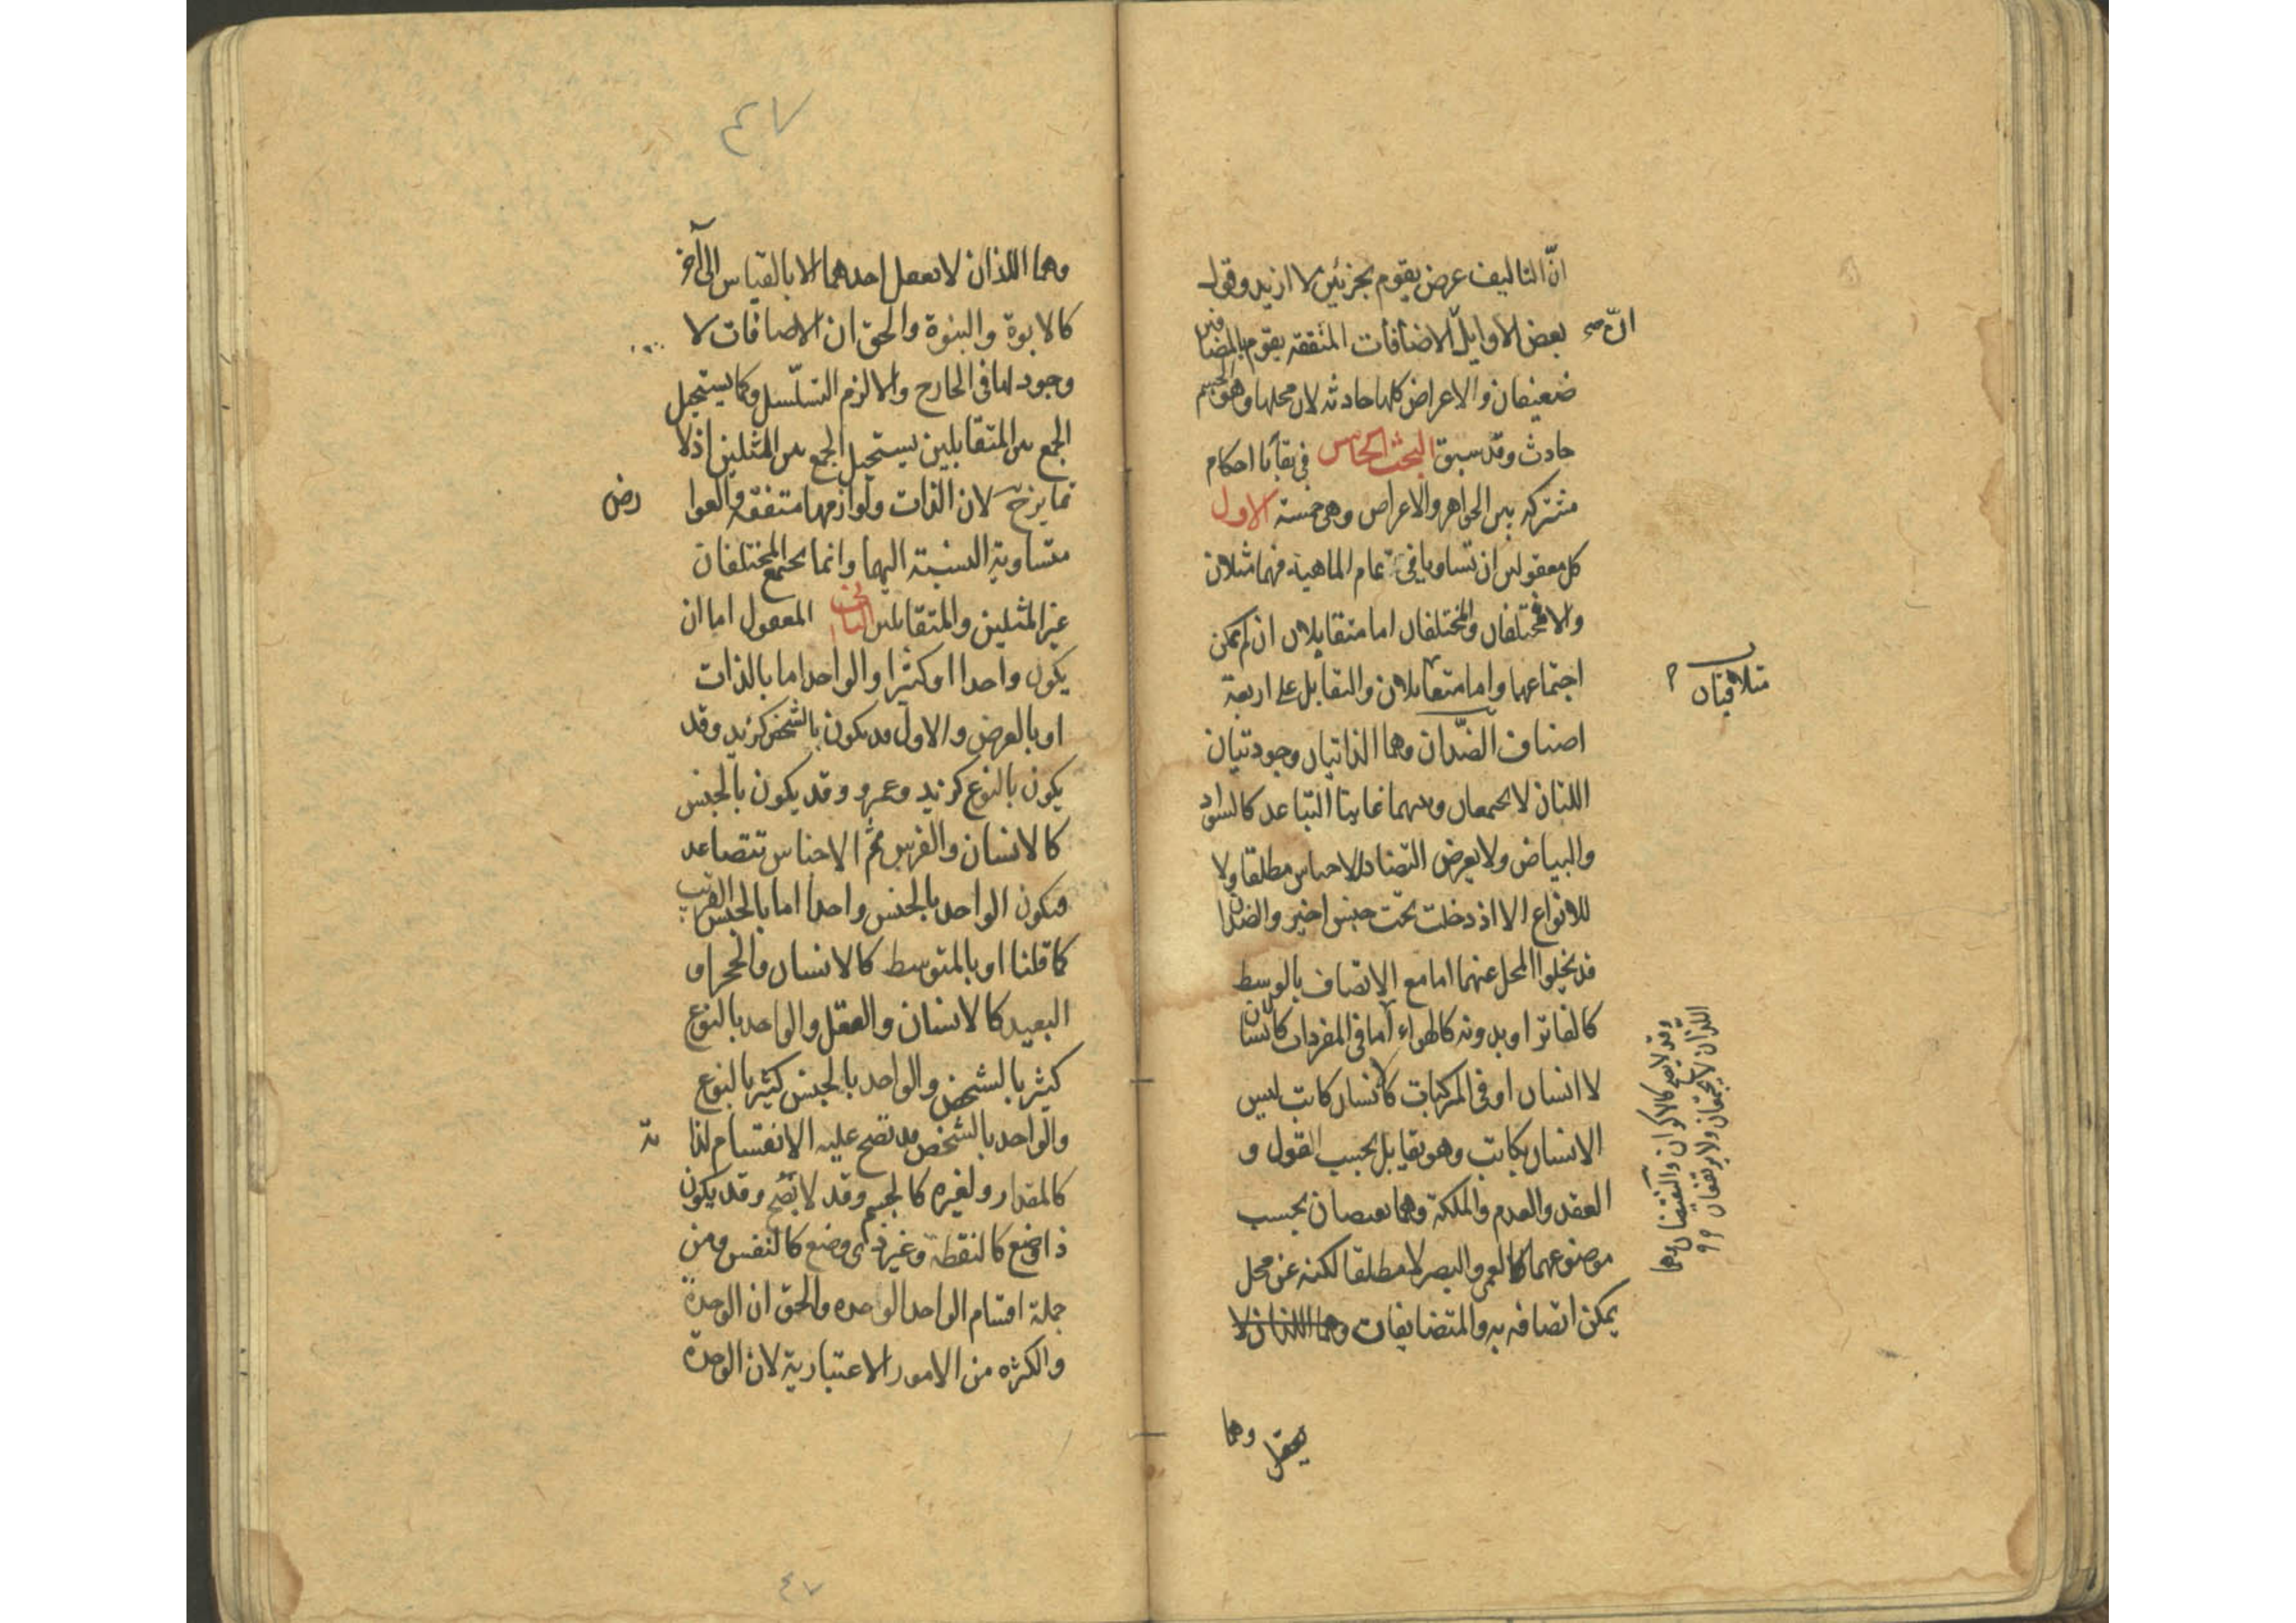 انّ التاليف عرض يقوم بجزئين لا ازيد وقول
بعض الاوايل الاضافات المتفقه يقوم بالمضافين
انّ صح
ضعيفان والاعراض كلها حادثه لان محلها وهو الجسم
حادث وقد سبق البحث الخامس في بقايا احكام
مشتركه بين الجواهر والاعراض وهي خمسة الاول
كل معقولين ان تساويا في تمام الماهية فهما مثلان
والا فمختلفان والمختلفان اما متقابلان ان لم يمكن
اجتماعهما واما متقابلان والتقابل على اربعة
متلاقيان
اصناف الضدّان وهما الذاتيان وجوديتيان
اللتان لا يجتمعان وبينهما غايتا التباعد كالسواد
والبياض ولا يعرض التضاد للاجناس مطلقا ولا
للانواع الا اذ دخلت تحت جنس اخير والضدان
قد يخلوا المحل عنهما اما مع الاتصاف بالوسط
كالفاتر او بدونه كالهواء اما في المفردات كانسان
لا انسان او في المركبات كانسان كاتب ليس
الانسان بكاتب وهو تقابل بحسب القول و
العقد والعدم والملكة وهما نقيضان بحسب
موضوعهما كالعمى والبصر لا مطلقا لكنه عن محل
يمكن اتصافه به والمتضايفات وهما اللذان لا
وقد لا يصح كالاكوان والنقيضان وهما
اللذان لا يجتمعان ولا يرتفعان
يعقل وهما
٤٧
وهما اللذان لا يعقل احدهما الا بالقياس الى آخر
كالابوة والبنوة والحق ان الاضافات لا
وجود لها في الخارج والا لزم التسلّسل وكما يستحيل
الجمع بين المتقابلين يستحيل الجمع بين المثلين اذ لا
تمايز ح لان الذات ولوازمها متفقه والعوا رض
متساوية النسبة اليهما وانما يجتمع المختلفان
غير المثلين والمتقابلين الثاني المعقول اما ان
يكون واحدا او كثيرا والواحد اما بالذات
او بالعرض والاول قد يكون بالشخص كزيد وقد
يكون بالنوع كزيد وعمرو وقد يكون بالجنس
كالانسان والفرس ثم الاجناس تتصاعد
فيكون الواحد بالجنس واحدا اما بالجنس القريب
كما قلنا او بالمتوسط كالانسان والحجر او
البعيد كالانسان والعقل والواحد بالنوع
كثير بالشخص والواحد بالجنس كثير بالنوع
والواحد بالشخص قد تصح عليه الانقسام لذا ته
كالمقدار ولغيره كالجسم وقد لا يصح وقد يكون
ذا وضع كالنقطة وغير ذى وضع كالنفس ومن
جملة اقسام الواحد الوحده والحق ان الوحدة
والكثره من الامور الاعتبارية لان الوحدة
٤٧